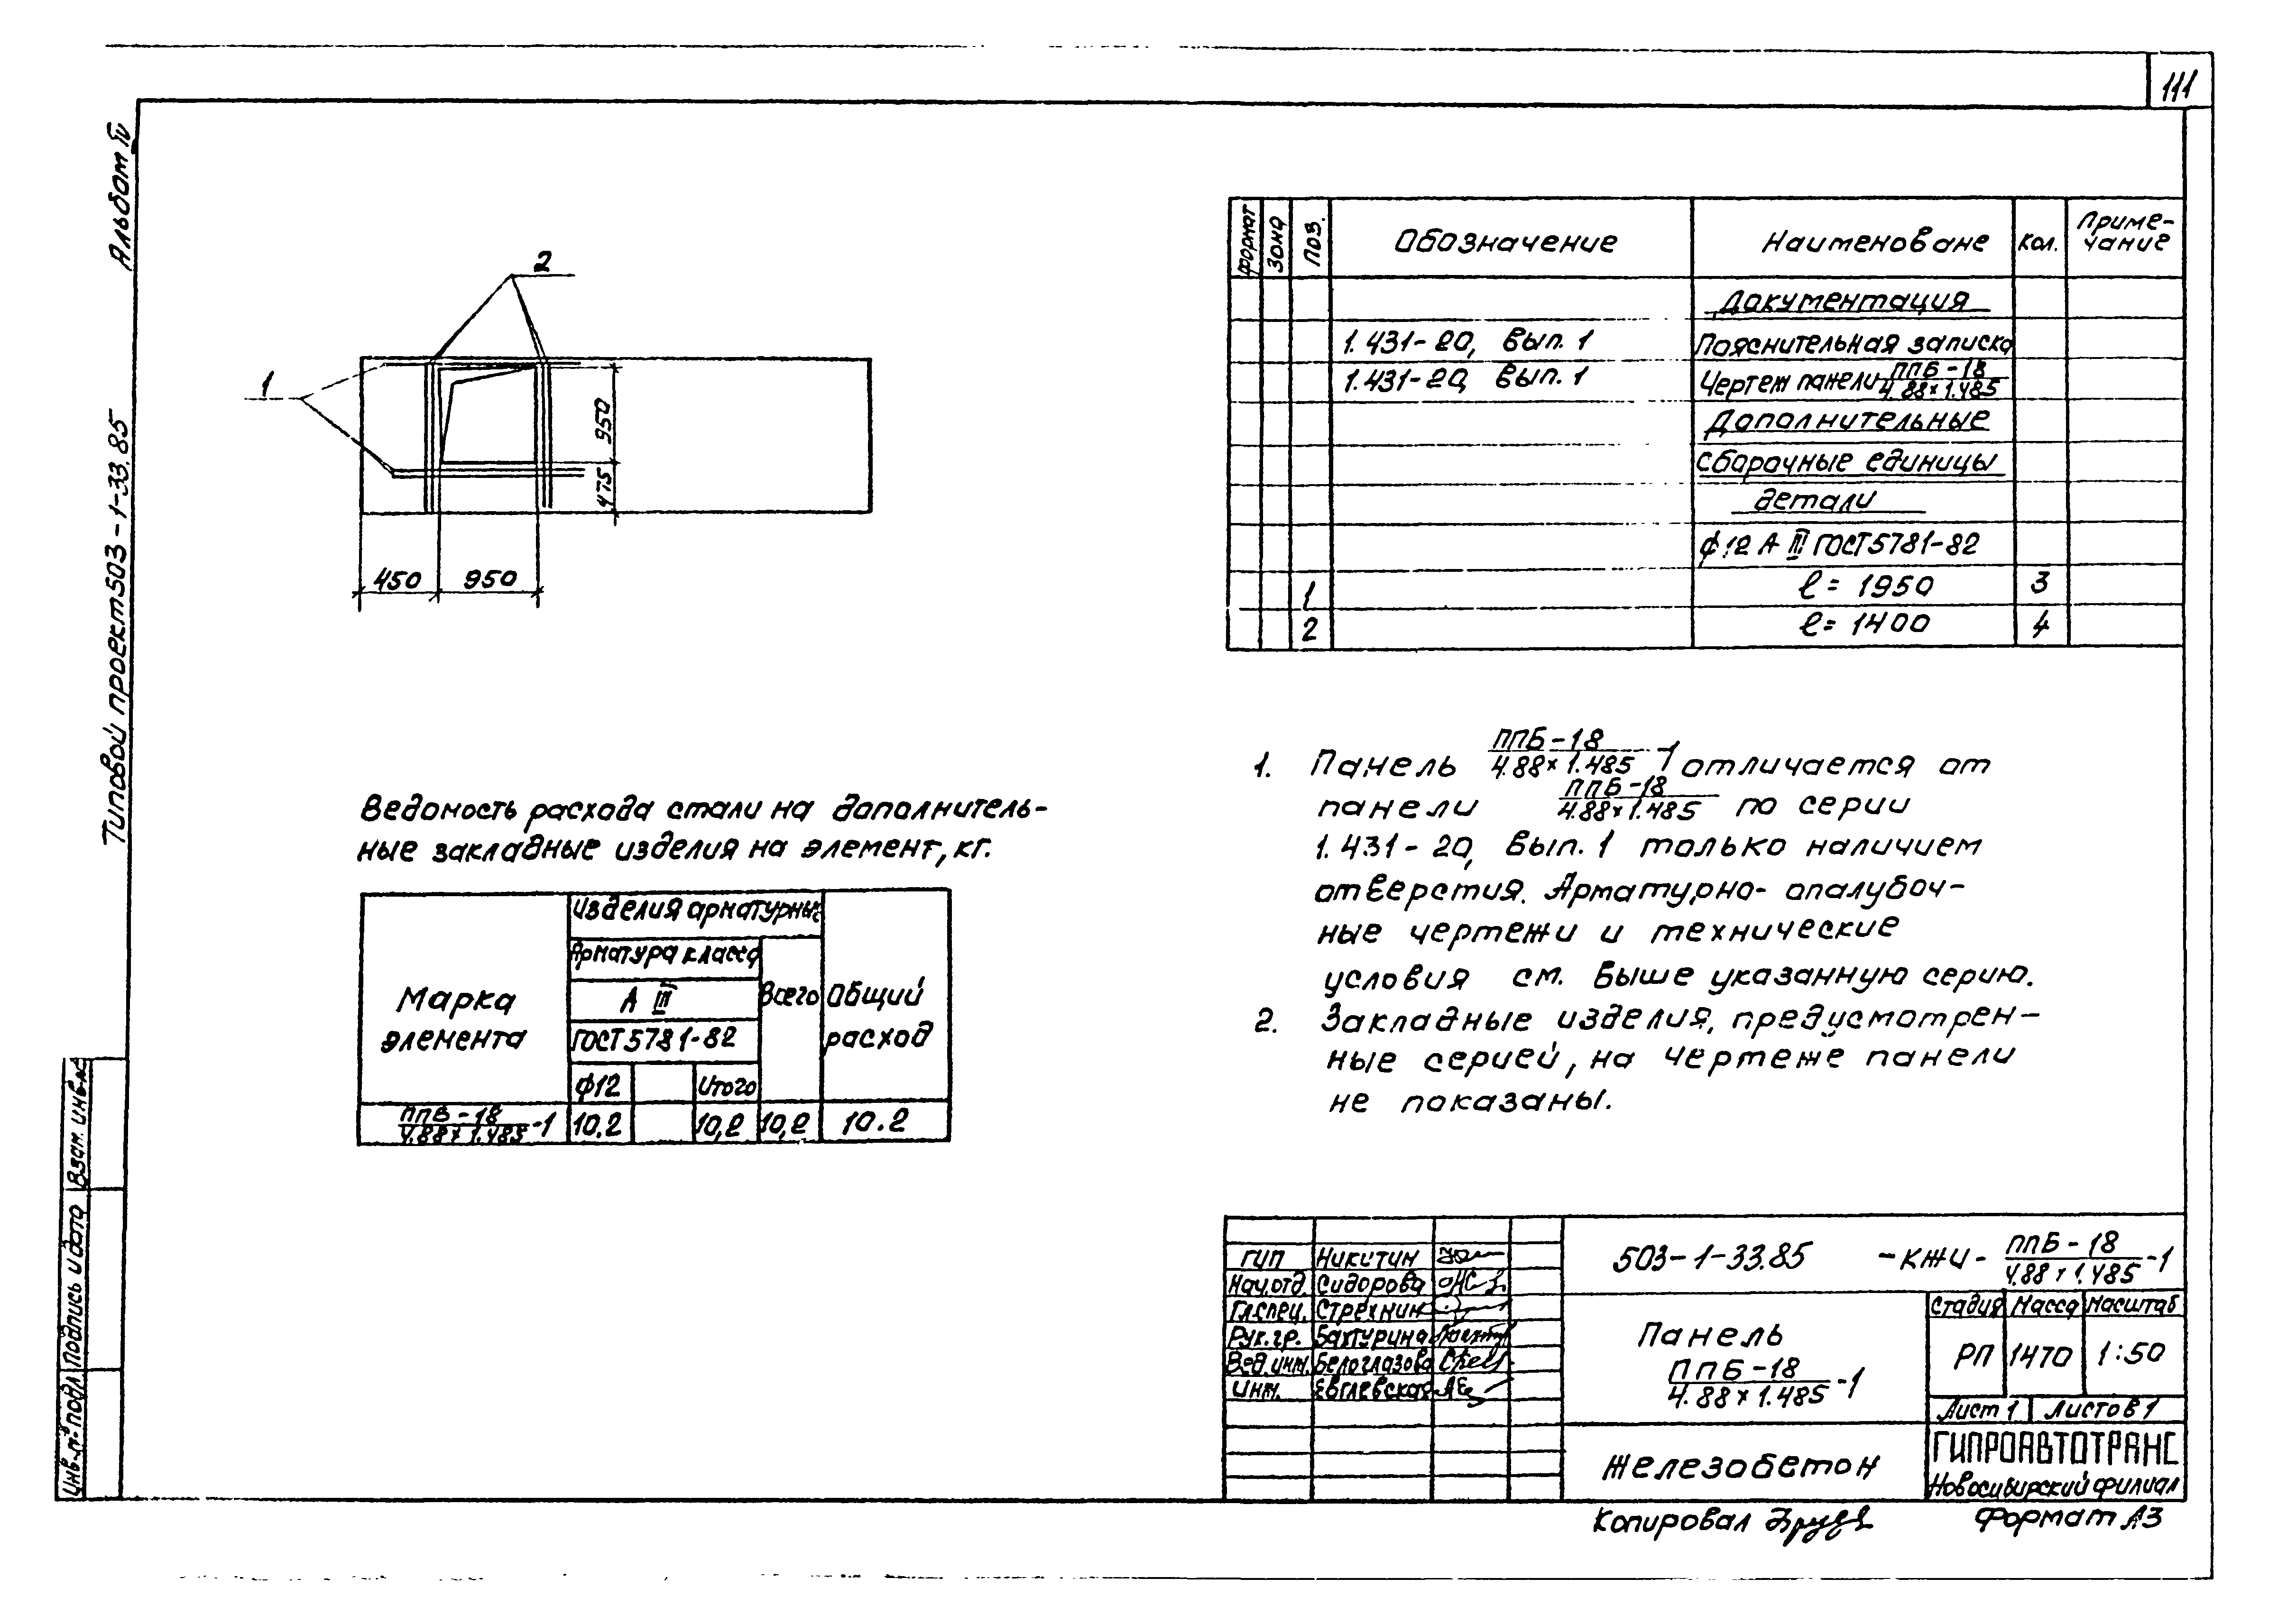 111
Альбом IV
Типовой проект 503-1-33.85
2
1
950
475
450
950
Формат
Зона
Поз.
Обозначение
Наименоване
Кол.
Приме-
чание
Документация
1.431-20, вып. 1
Пояснительная записка
1.431-20, вып. 1
Чертеж панели ППБ-18
4.88х1.485
Дополнительные
сборочные единицы
детали
ф12 А III ГОСТ5781-82
1
ℓ= 1950
3
2
ℓ= 1400
4
1. Панель ППБ-18/4.88х1.485-1 отличается от
панели ППБ-18/4.88х1.485 по серии
1.431-20, вып. 1 только наличием
отверстия. Арматурно-опалубоч-
ные чертежи и технические
условия см. выше указанную серию.
2. Закладные изделия, предусмотрен-
ные серией, на чертеже панели
не показаны.
Ведомость расхода стали на дополнитель-
ные закладные изделия на элемент, кг.
Марка
элемента
Изделия арматурные
Арматура класса
А III
ГОСТ5781-82
ф12
Итого
Всего
Общий
расход
ППБ-18
4.88х1.485 -1
10.2
10,2
10,2
10.2
Взам. инв. №
Подпись и дата
Инв. № подл.
ГИП Никитин
Нач.отд. Сидорова
Гл.спец. Стрехнин
Рук.гр. Бахтурина
Вед.инж. Белоглазова
Инж. Евглевская
503-1-33.85 -КЖИ- ППБ-18/4.88х1.485 -1
Панель
ППБ-18
4.88х1.485 -1
Стадия Масса Масштаб
РП 1470 1:50
Лист 1 Листов 1
Железобетон
ГИПРОАВТОТРАНС
Новосибирский филиал
Копировал
Формат А3